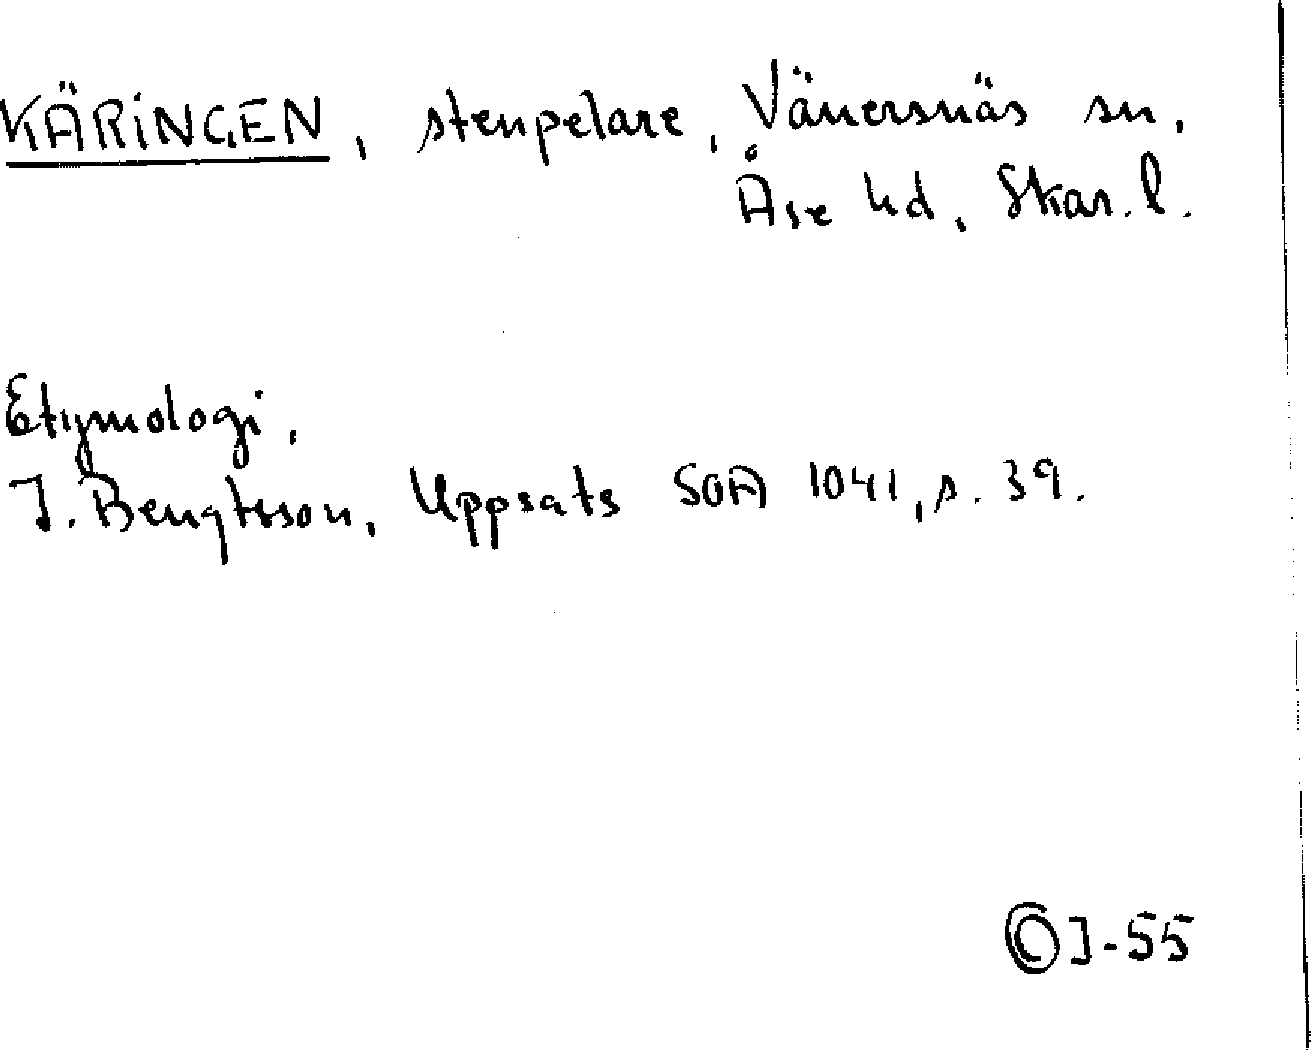 KÄRINGEN, stenpelare, Vänersnäs sn,
Åse hd, Skar. l.
Etymologi,
J. Bengtsson, Uppsats SOA 1041, s. 39.
©J-55